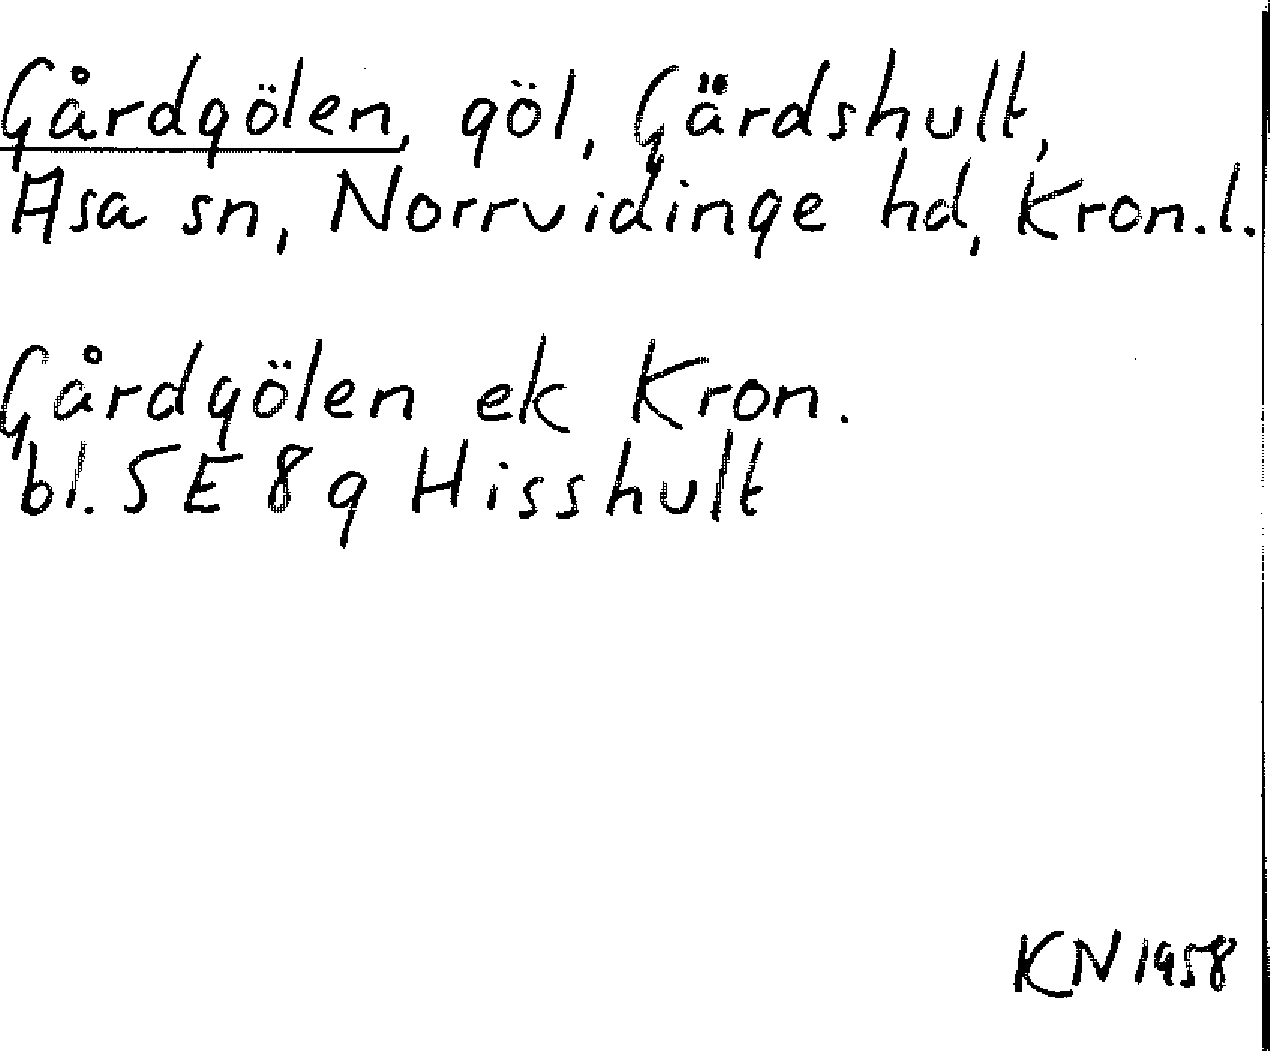 Gårdgölen, göl, Gärdshult,
Asa sn, Norrvidinge hd, Kron.l.
Gårdgölen ek Kron.
bl. 5E8g Hisshult
KN 1958